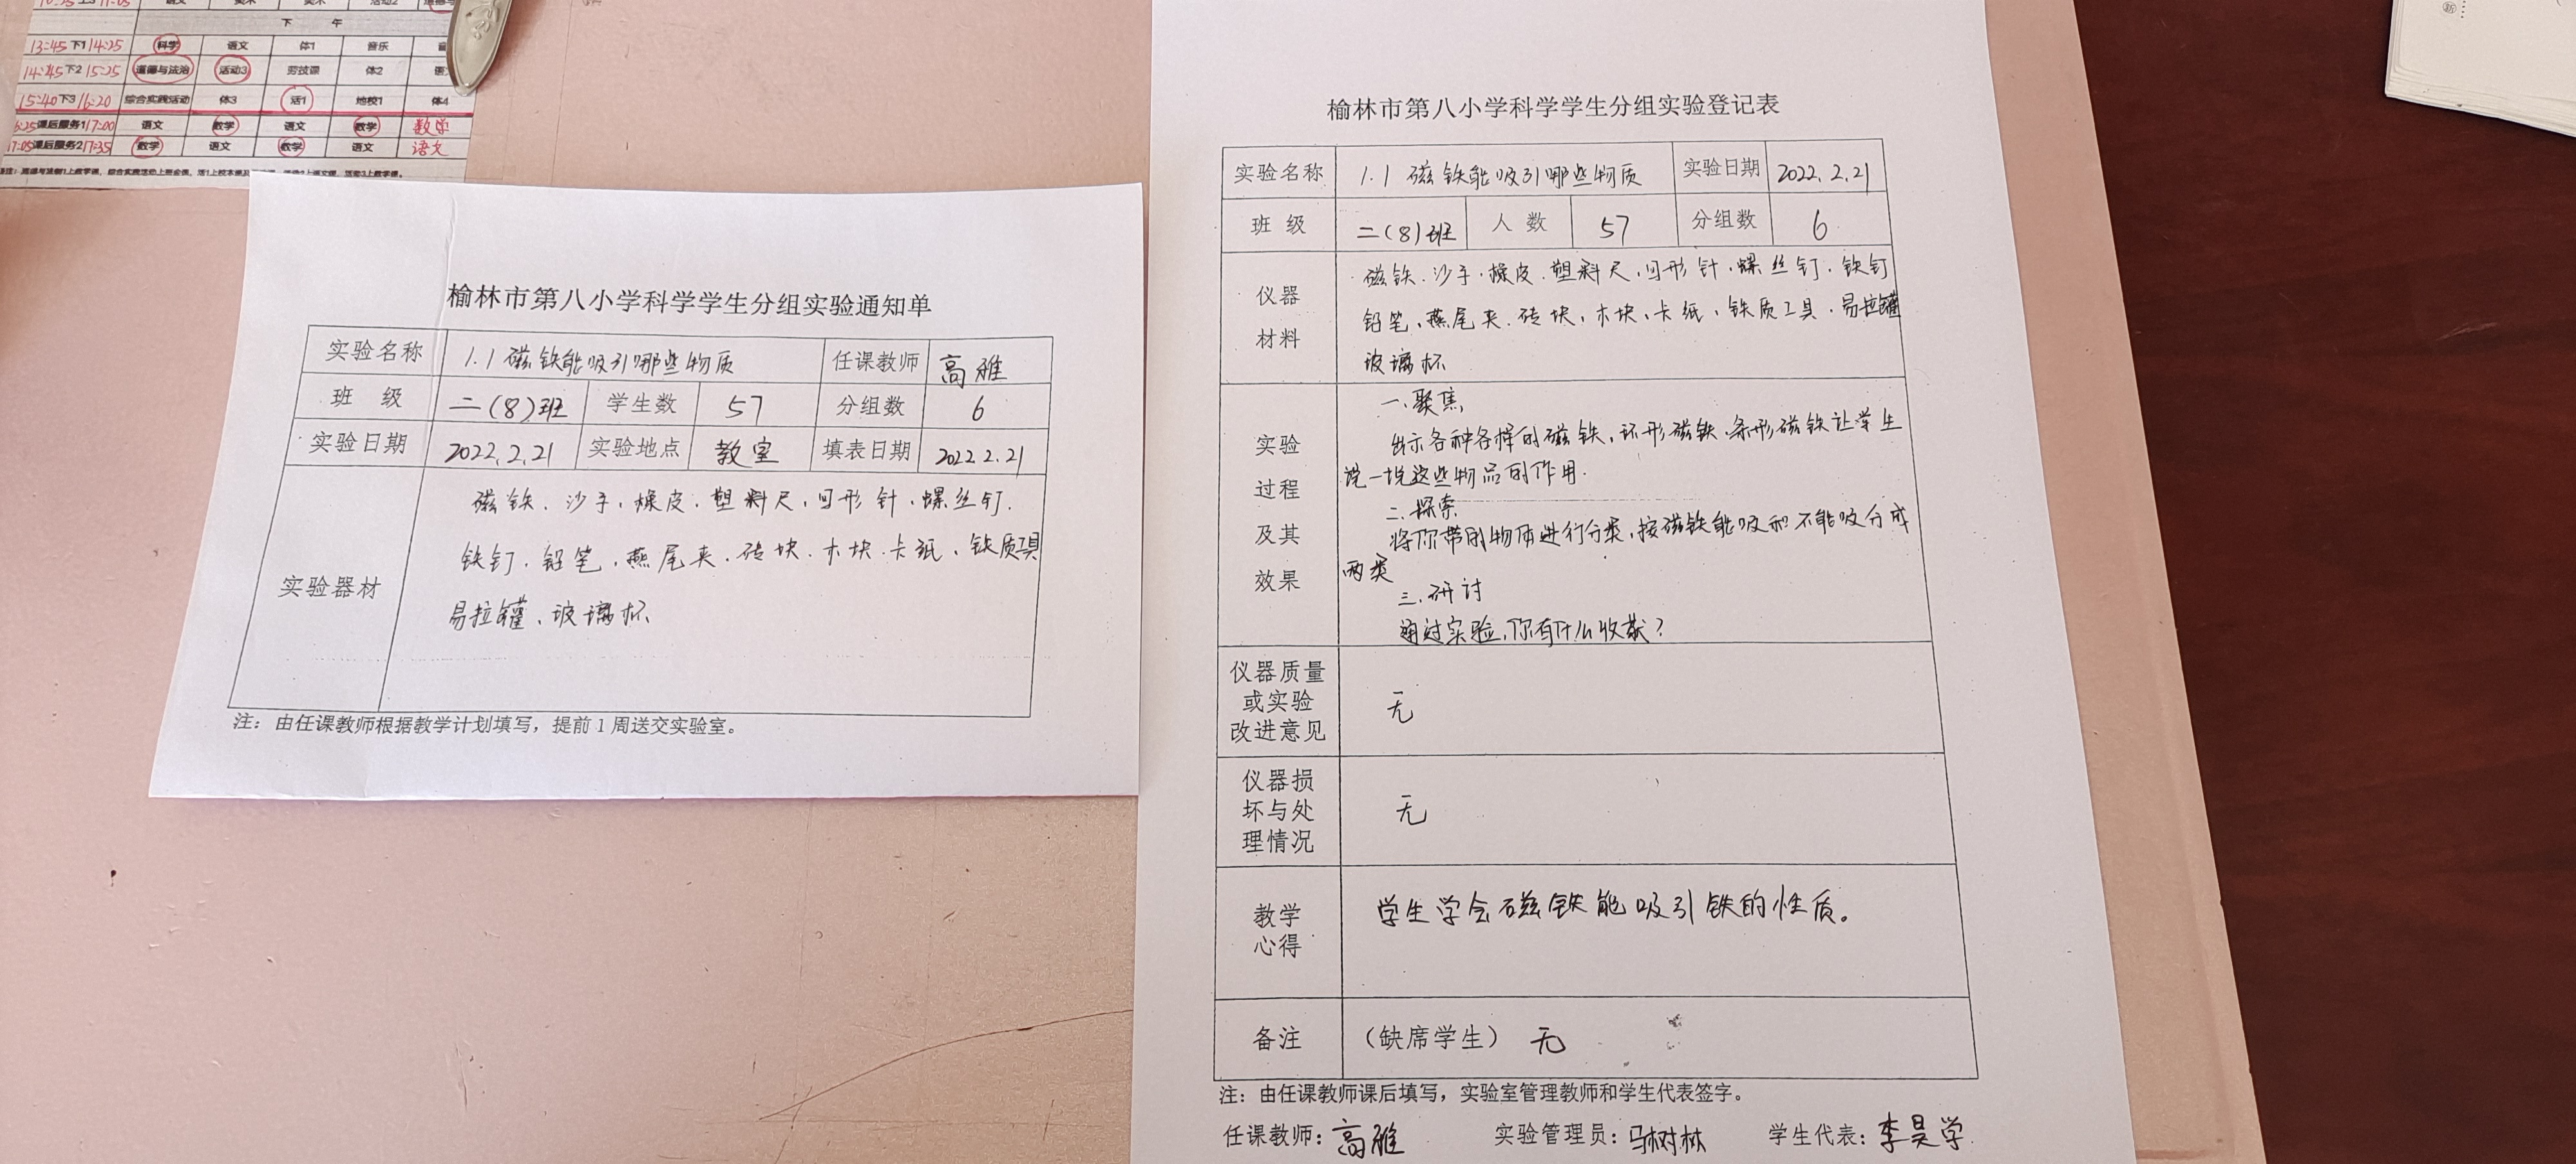 下 午
13:45 下1 14:25 科学 语文 体1 音乐
14:45 下2 15:25 道德与法治 活动3 劳技课 体2
15:40 下3 16:20 综合实践活动 体3 活1 地校1 体4
课后服务1 17:00 语文 数学 语文 数学 数学
17:05 课后服务2 17:35 数学 语文 数学 语文 语文
榆林市第八小学科学学生分组实验通知单
实验名称 1.1 磁铁能吸引哪些物质 任课教师 高雅
班 级 二(8)班 学生数 57 分组数 6
实验日期 2022.2.21 实验地点 教室 填表日期 2022.2.21
实验器材
磁铁、沙子、橡皮、塑料尺、回形针、螺丝钉、
铁钉、铅笔、燕尾夹、砖块、木块、卡纸、铁质工具
易拉罐、玻璃杯、
注：由任课教师根据教学计划填写，提前1周送交实验室。
榆林市第八小学科学学生分组实验登记表
实验名称 1.1 磁铁能吸引哪些物质 实验日期 2022.2.21
班 级 二(8)班 人 数 57 分组数 6
仪器
材料
磁铁、沙子、橡皮、塑料尺、回形针、螺丝钉、铁钉
铅笔、燕尾夹、砖块、木块、卡纸、铁质工具、易拉罐
玻璃杯
实验
过程
及其
效果
一.聚焦
出示各种各样的磁铁，环形磁铁、条形磁铁让学生
说一说这些物品的作用.
二.探索
将你带的物质进行分类，按磁铁能吸和不能吸分成
两类
三.研讨
通过实验，你有什么收获？
仪器质量
或实验
改进意见
无
仪器损
坏与处
理情况
无
教学
心得
学生学会磁铁能吸引铁的性质。
备注 （缺席学生） 无
注：由任课教师课后填写，实验室管理教师和学生代表签字。
任课教师：高雅 实验管理员：马树林 学生代表：李昊学